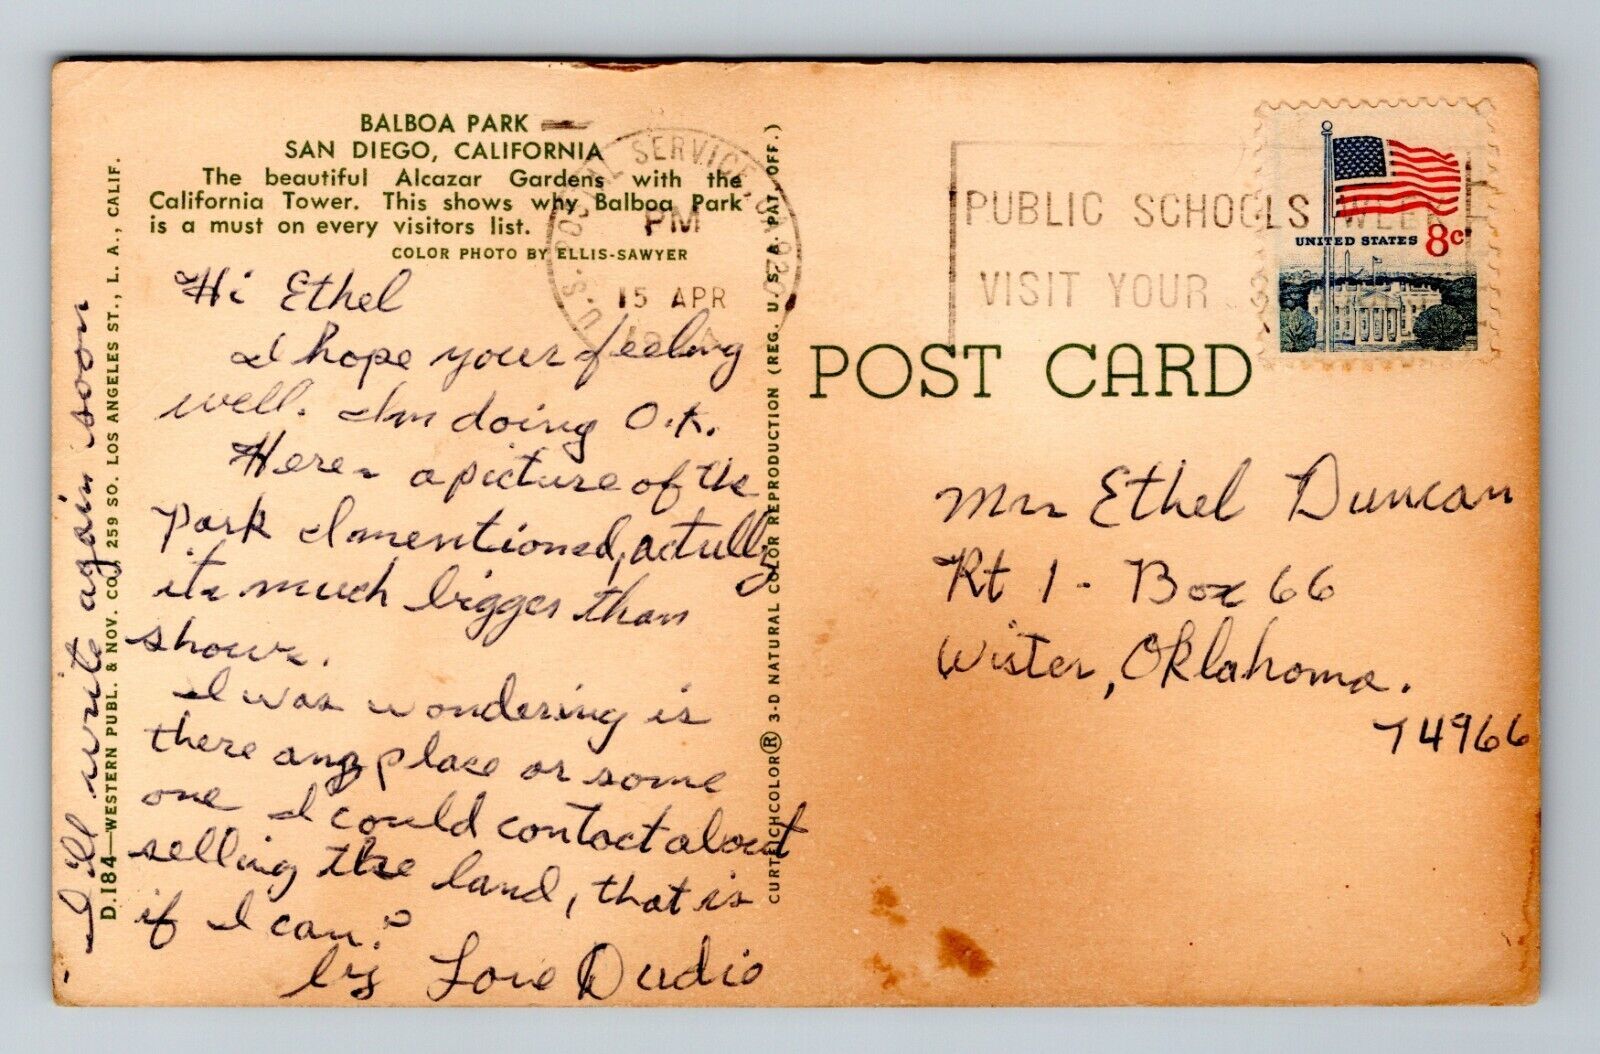 BALBOA PARK
SAN DIEGO, CALIFORNIA
The beautiful Alcazar Gardens with the
California Tower. This shows why Balboa Park
is a must on every visitors list.
COLOR PHOTO BY ELLIS-SAWYER
Hi Ethel
I hope your feeling
well. I'm doing O.K.
Heres a picture of the
Park I mentioned, actully
its much bigger than
shows.
I was wondering is
there any place or some
one I could contact about
selling the land, that is
if I can?
by Love Dudie
I'll write again soon
D.184—WESTERN PUBL. & NOV. CO., 259 SO. LOS ANGELES ST., L. A., CALIF.
CURTEICHCOLOR® 3-D NATURAL COLOR REPRODUCTION (REG. U. S. A. PAT. OFF.)
U.S. POSTAL SERVICE
PM
15 APR
PUBLIC SCHOOLS WEEK
VISIT YOUR
UNITED STATES 8c
POST CARD
Mrs Ethel Duncan
Rt 1 - Box 66
Wister, Oklahoma.
74966